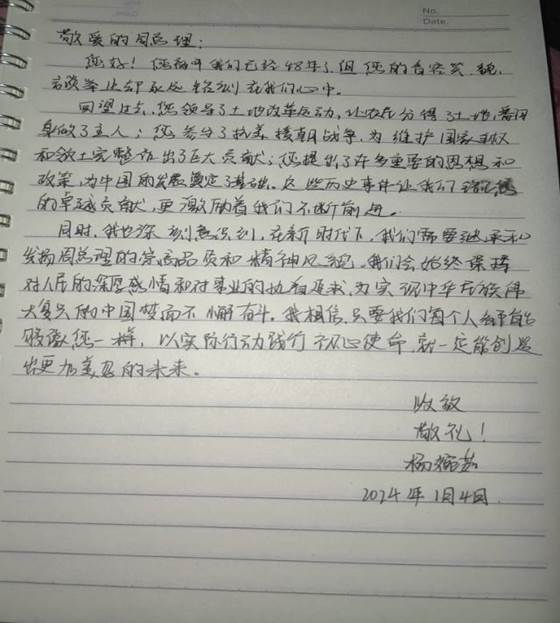 No.
Date.
敬爱的周总理：
您好！您离开我们已经48年了，但您的音容笑貌、
言谈举止却永远铭刻在我们心中。
回望过去，您领导了土地改革运动，让农民分得了土地，翻
身做了主人；您参与了抗美援朝战争，为维护国家主权
和领土完整作出了巨大贡献；您提出了许多重要的思想和
政策，为中国的发展奠定了基础。这些历史事件让我们
的卓越贡献，更激励着我们不断前进。
同时，我也深刻意识到，在新时代下，我们需要继承和
发扬周总理的崇高品质和精神风貌。我们会始终保持
对人民的深厚感情和对事业的执着追求，为实现中华民族伟
大复兴的中国梦而不懈奋斗。我相信，只要我们每个人都能
够像您一样，以实际行动践行初心使命，就一定能创造
出更加美好的未来。
此致
敬礼！
杨
2024年1月4日